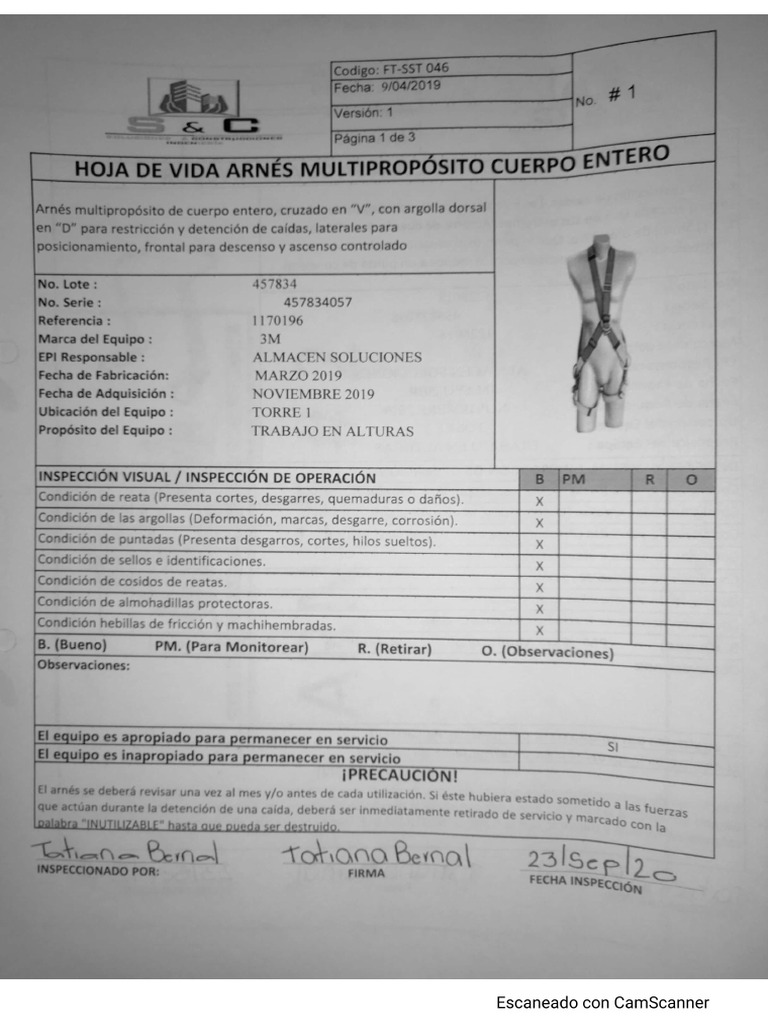 Codigo: FT-SST 046
Fecha: 9/04/2019
Versión: 1
Página 1 de 3
No. # 1
S & C
HOJA DE VIDA ARNÉS MULTIPROPÓSITO CUERPO ENTERO
Arnés multipropósito de cuerpo entero, cruzado en “V”, con argolla dorsal
en “D” para restricción y detención de caídas, laterales para
posicionamiento, frontal para descenso y ascenso controlado
No. Lote : 457834
No. Serie : 457834057
Referencia : 1170196
Marca del Equipo : 3M
EPI Responsable : ALMACEN SOLUCIONES
Fecha de Fabricación: MARZO 2019
Fecha de Adquisición : NOVIEMBRE 2019
Ubicación del Equipo : TORRE 1
Propósito del Equipo : TRABAJO EN ALTURAS
INSPECCIÓN VISUAL / INSPECCIÓN DE OPERACIÓN B PM R O
Condición de reata (Presenta cortes, desgarres, quemaduras o daños). X
Condición de las argollas (Deformación, marcas, desgarre, corrosión). X
Condición de puntadas (Presenta desgarros, cortes, hilos sueltos). X
Condición de sellos e identificaciones. X
Condición de cosidos de reatas. X
Condición de almohadillas protectoras. X
Condición hebillas de fricción y machihembradas. X
B. (Bueno) PM. (Para Monitorear) R. (Retirar) O. (Observaciones)
Observaciones:
El equipo es apropiado para permanecer en servicio SI
El equipo es inapropiado para permanecer en servicio
¡PRECAUCIÓN!
El arnés se deberá revisar una vez al mes y/o antes de cada utilización. Si éste hubiera estado sometido a las fuerzas
que actúan durante la detención de una caída, deberá ser inmediatamente retirado de servicio y marcado con la
palabra "INUTILIZABLE" hasta que pueda ser destruido.
Tatiana Bernal Tatiana Bernal 23/Sep/20
INSPECCIONADO POR: FIRMA FECHA INSPECCIÓN
Escaneado con CamScanner